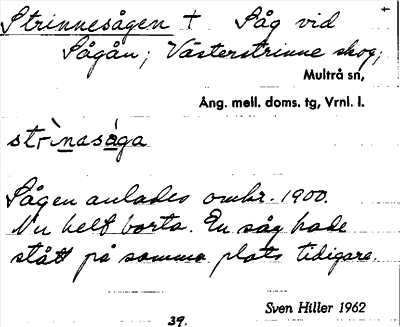 Strinnesågen + Såg vid
Sågån; Västerstrinne skog;
Multrå sn,
Ång. mell. doms. tg, Vrnl. l.
strìnasǻga
Sågen anlades omkr. 1900.
Nu helt borta. En såg hade
stått på samma plats tidigare.
Sven Hiller 1962
39.